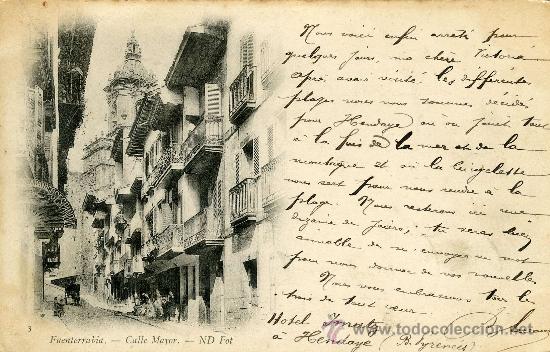 Nous voici enfin arrêté pour
quelques jours, ma chère Victoria
Après avoir visité les différentes
plages nous nous sommes décidés
pour Hendaye où on jouit tout
à la fois de la mer et de la
montagne et où la bicyclette
nous sert pour nous rendre à la
plage. Nous resterons ici une
dizaine de jours; tu serais bien
aimable de m'envoyer un mot
pour nous donner de vos nouvelles
Nous vous embrassons tous les
trois de tout cœur.
Hotel
à Hendaye (B. Pyrénées)
3
Fuenterrabia. — Calle Mayor. — ND Fot
todocoleccion.net